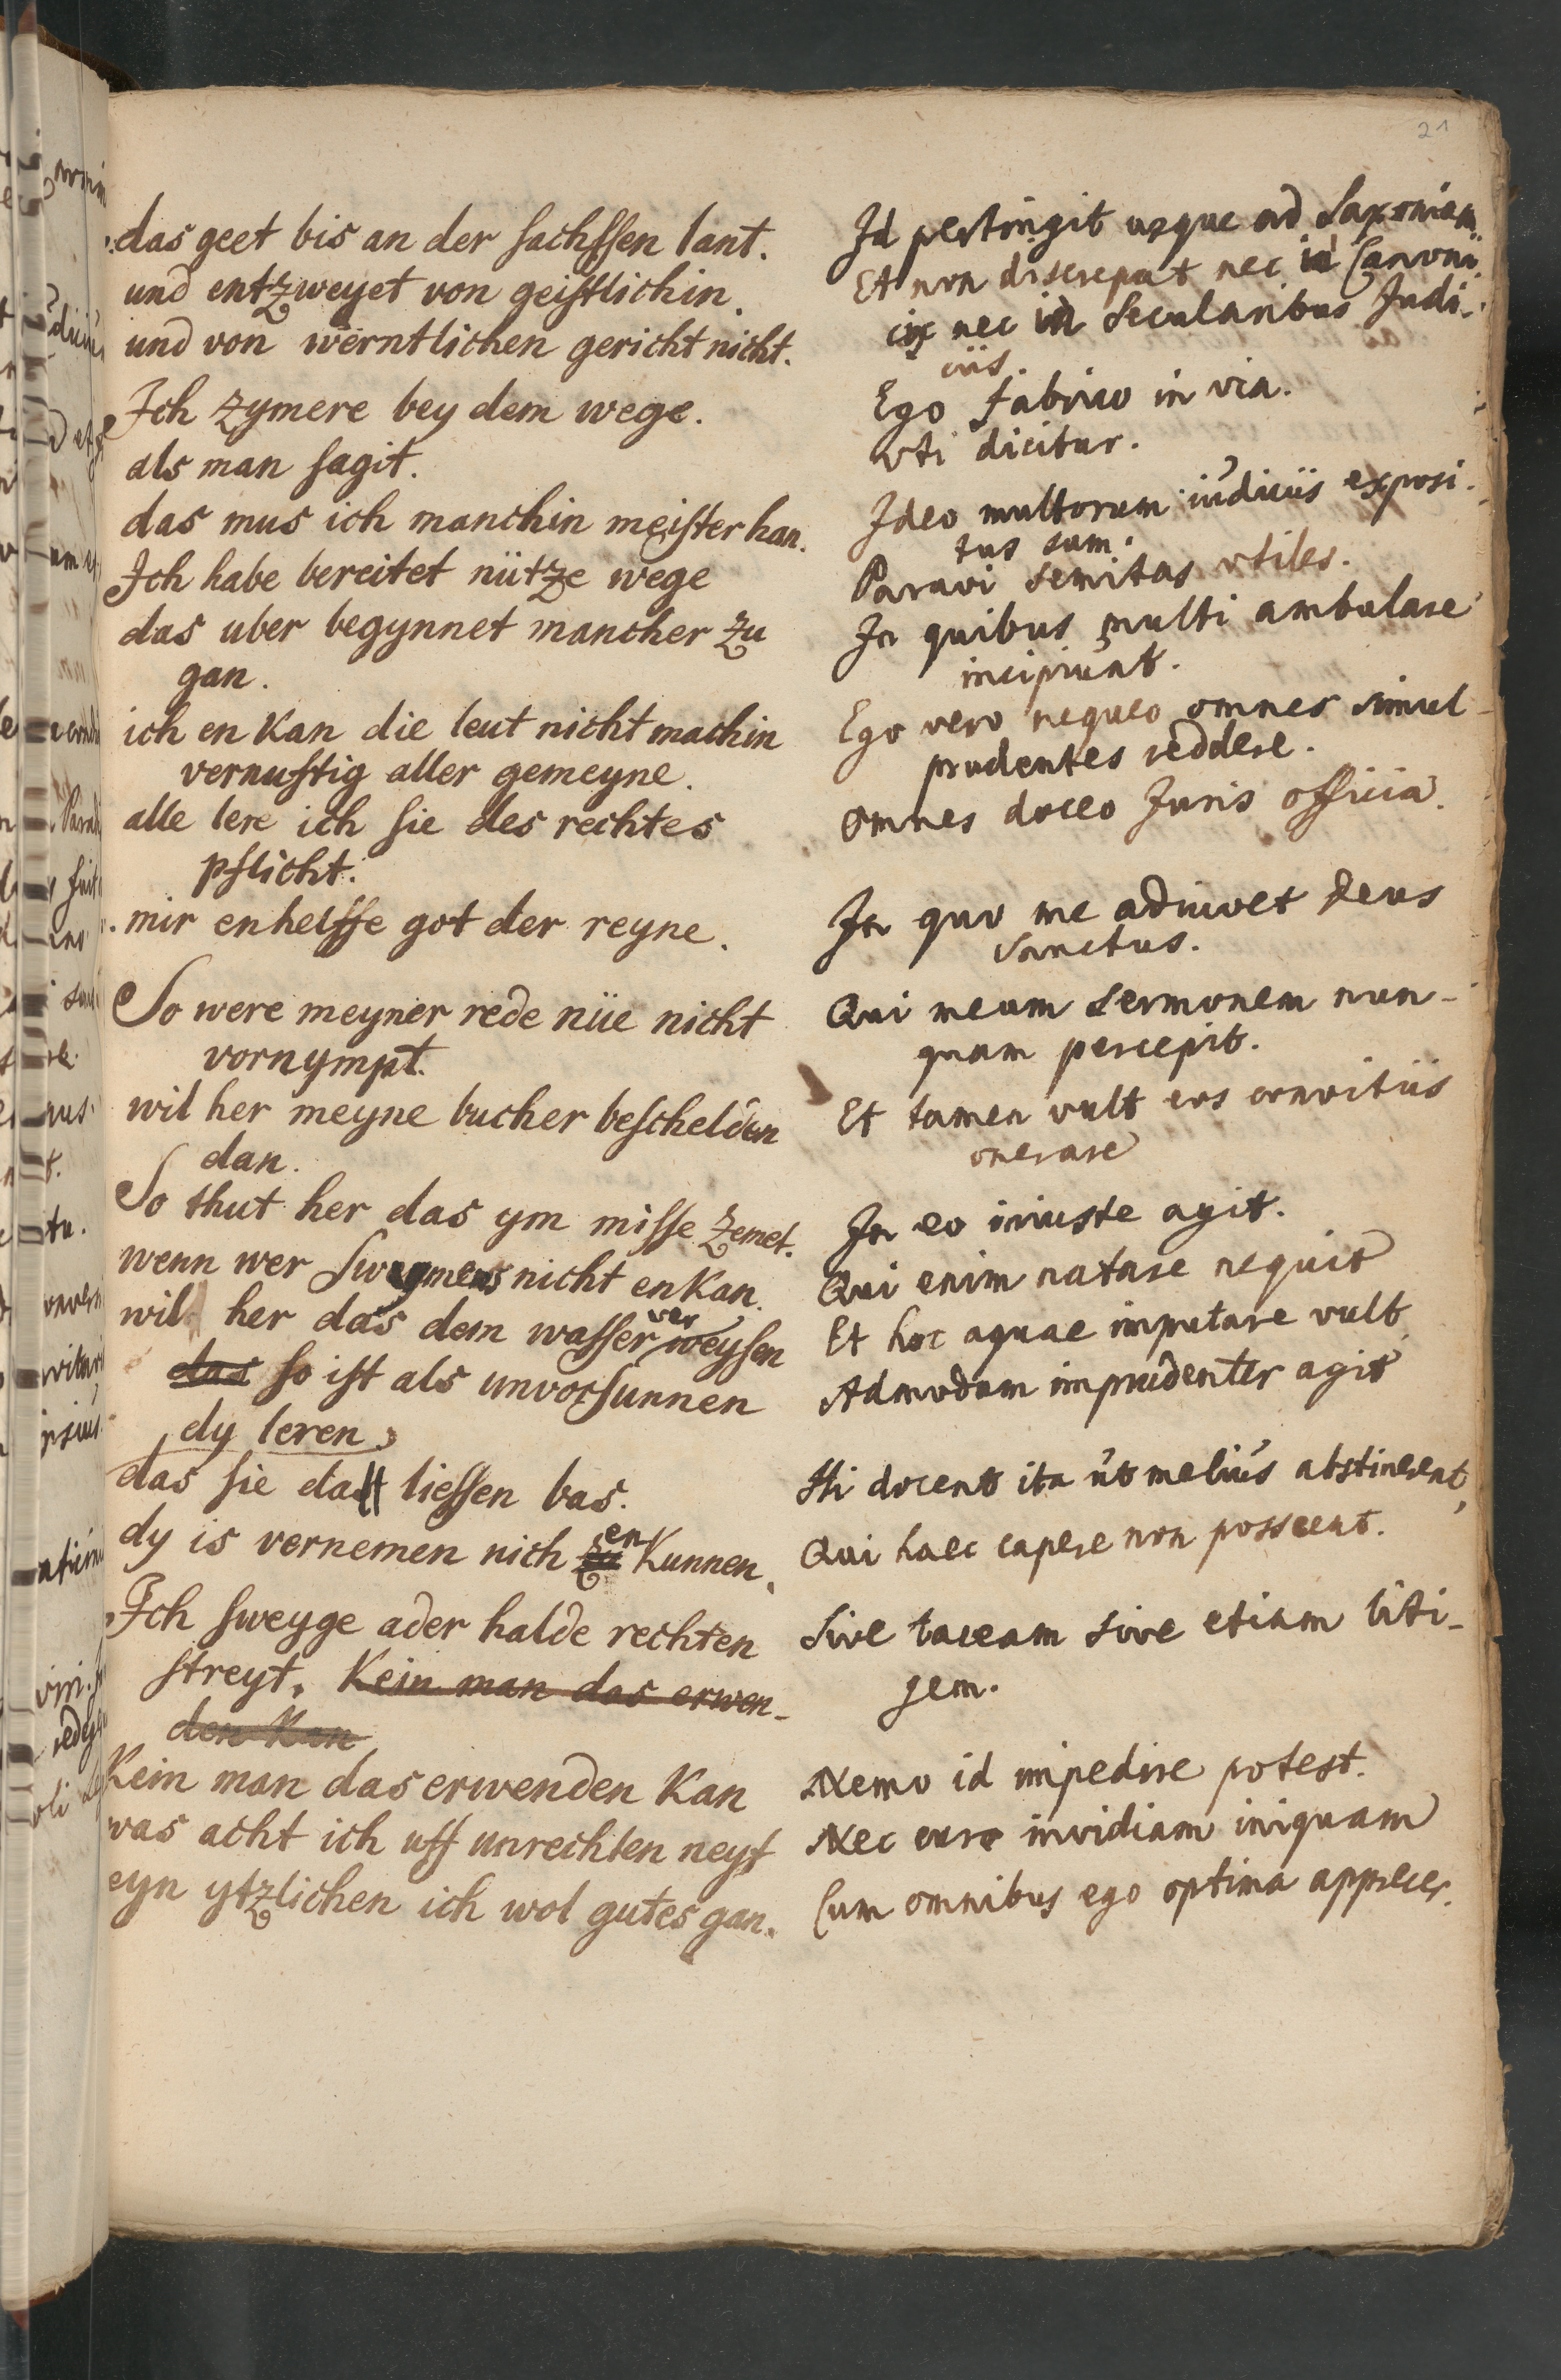 21
das geet bis an der sachssen lant.
und entzweyet von geistlichin
und von werntlichen gericht nicht.
Ich zymere bey dem wege.
als man sagit.
das mus ich manchin meister han.
Ich habe bereitet nütze wege
das uber begynnet mancher zu
gan.
ich en kan die leut nicht machin
vernuftig aller gemeyne.
alle lere ich sie des rechtes
pflicht.
mir enhelffe got der reyne.
So were meyner rede nüe nicht
vornympt.
wil her meyne bucher beschelden
dan.
So thut her das ym misse zemet.
wenn wer Swymens nicht enkan.
wil her das dem wasser ver weysen
das so ist als unvorsunnen
dy leren
das sie dass liessen bas.
dy is vernemen nich en kunnen.
Ich sweyge ader halde rechten
streyt. Kein man das erwen-
den kan
Kein man das erwenden kan
was acht ich uff unrechten neyt
eyn ytzlichen ich wol gutes gan.
Id pertingit usque ad Saxoniam
Et non discrepat nec in Canoni
cis nec in Secularibus Judi-
ciis.
Ego fabrico in via.
vti dicitur.
Ideo multorum iudiciis exposi-
tus sum.
Paravi semitas vtiles.
In quibus multi ambulare
incipiunt.
Ego vero nequeo omnes simul
prudentes reddere.
Omnes doceo Juris officia.
In quo me adiuvet Deus
Sanctus.
Qui meum Sermonem nun-
quam percepit.
Et tamen vult eos convitiis
onerare
In eo iniuste agit.
Qui enim natare nequit
Et hoc aquae imputare vult
Admodum imprudenter agit
Hi docent ita ut melius abstinerent,
Qui haec capere non possent.
Sive taceam sive etiam liti-
gem.
Nemo id impedire potest.
Nec curo invidiam iniquam
Cum omnibus ego optima apprecer.